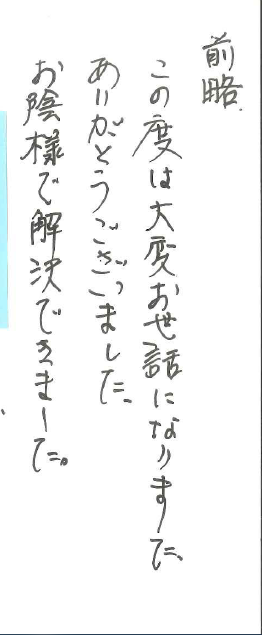 前略
この度は大変お世話になりました、
ありがとうございました、
お陰様で解決できました。